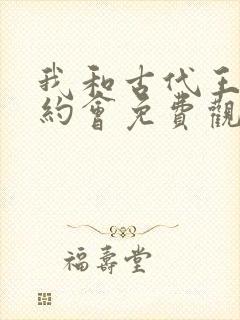 我和古代王
約會免費觀
福壽堂